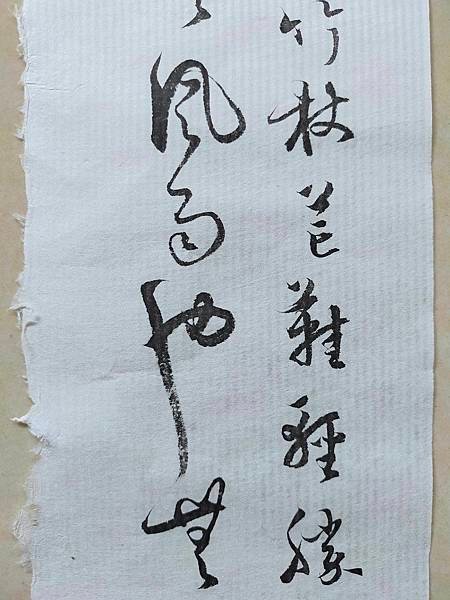 竹杖芒鞋輕勝
風雨也無